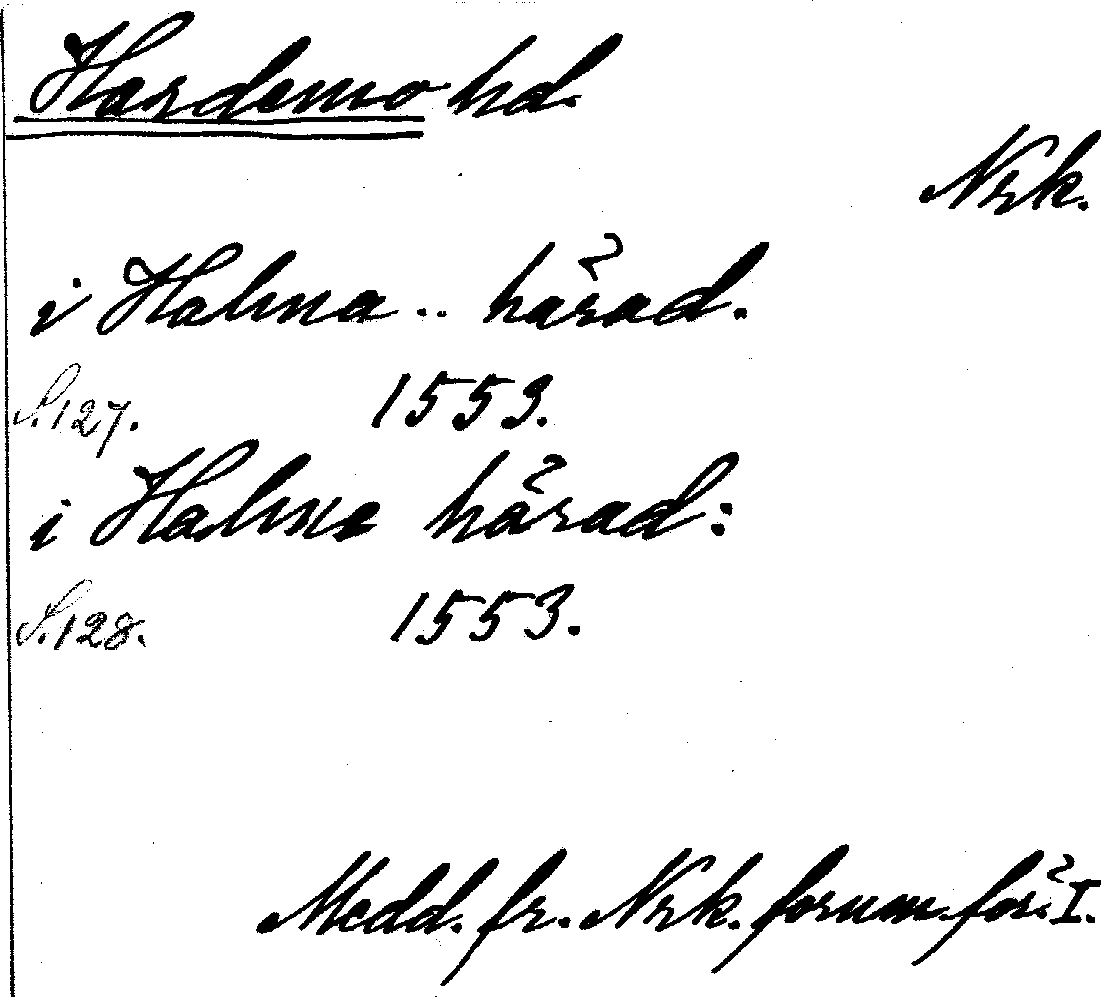 Hardemo hd.
Nrk.
i Halma .. härad.
S. 127. 1553.
i Halma härad:
S. 128. 1553.
Medd. fr. Nrk. fornm. för. I.